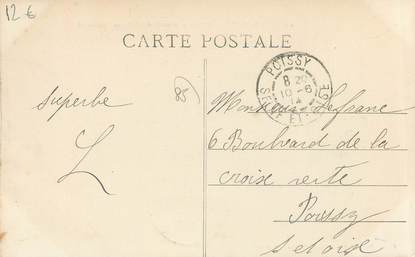 12 €
CARTE POSTALE
POISSY
8 30
10 - 6
14
SEINE ET OISE
superbe
85
L
Monsieur Lefranc
6 Boulvard de la
croix verte
Poissy
S et oise